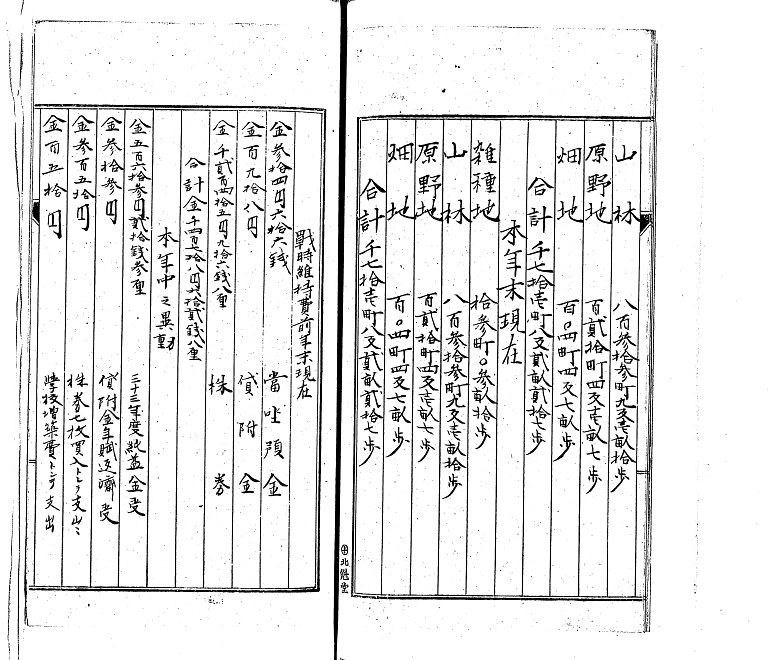 山林 八百参拾参町九反壱畝拾歩
原野地 百貳拾町四反壱畝七歩
畑地 百〇四町四反七畝歩
合計 千七拾壱町八反貳畝貳拾七歩
本年末現在
雑種地 拾参町〇参畝拾歩
山林 八百参拾参町九反壱畝拾歩
原野地 百貳拾町四反壱畝七歩
畑地 百〇四町四反七畝歩
合計 千七拾壱町八反貳畝貳拾七歩
北魁堂
戰時維持費前年末現在
金参拾四円六拾六銭 當坐預金
金百九拾八円 貸附金
金千貳百四拾五円九拾六銭八厘 株券
合計金千四百七拾八円六拾貳銭八厘
本年中之異動
金五百六拾参円貳拾銭参厘 三十三年度純益金受
金参拾参円 貸附金年賦返済受
金参百五拾円 株券七枚買入トシテ支出
金百五拾円 學校増築費トシテ支出